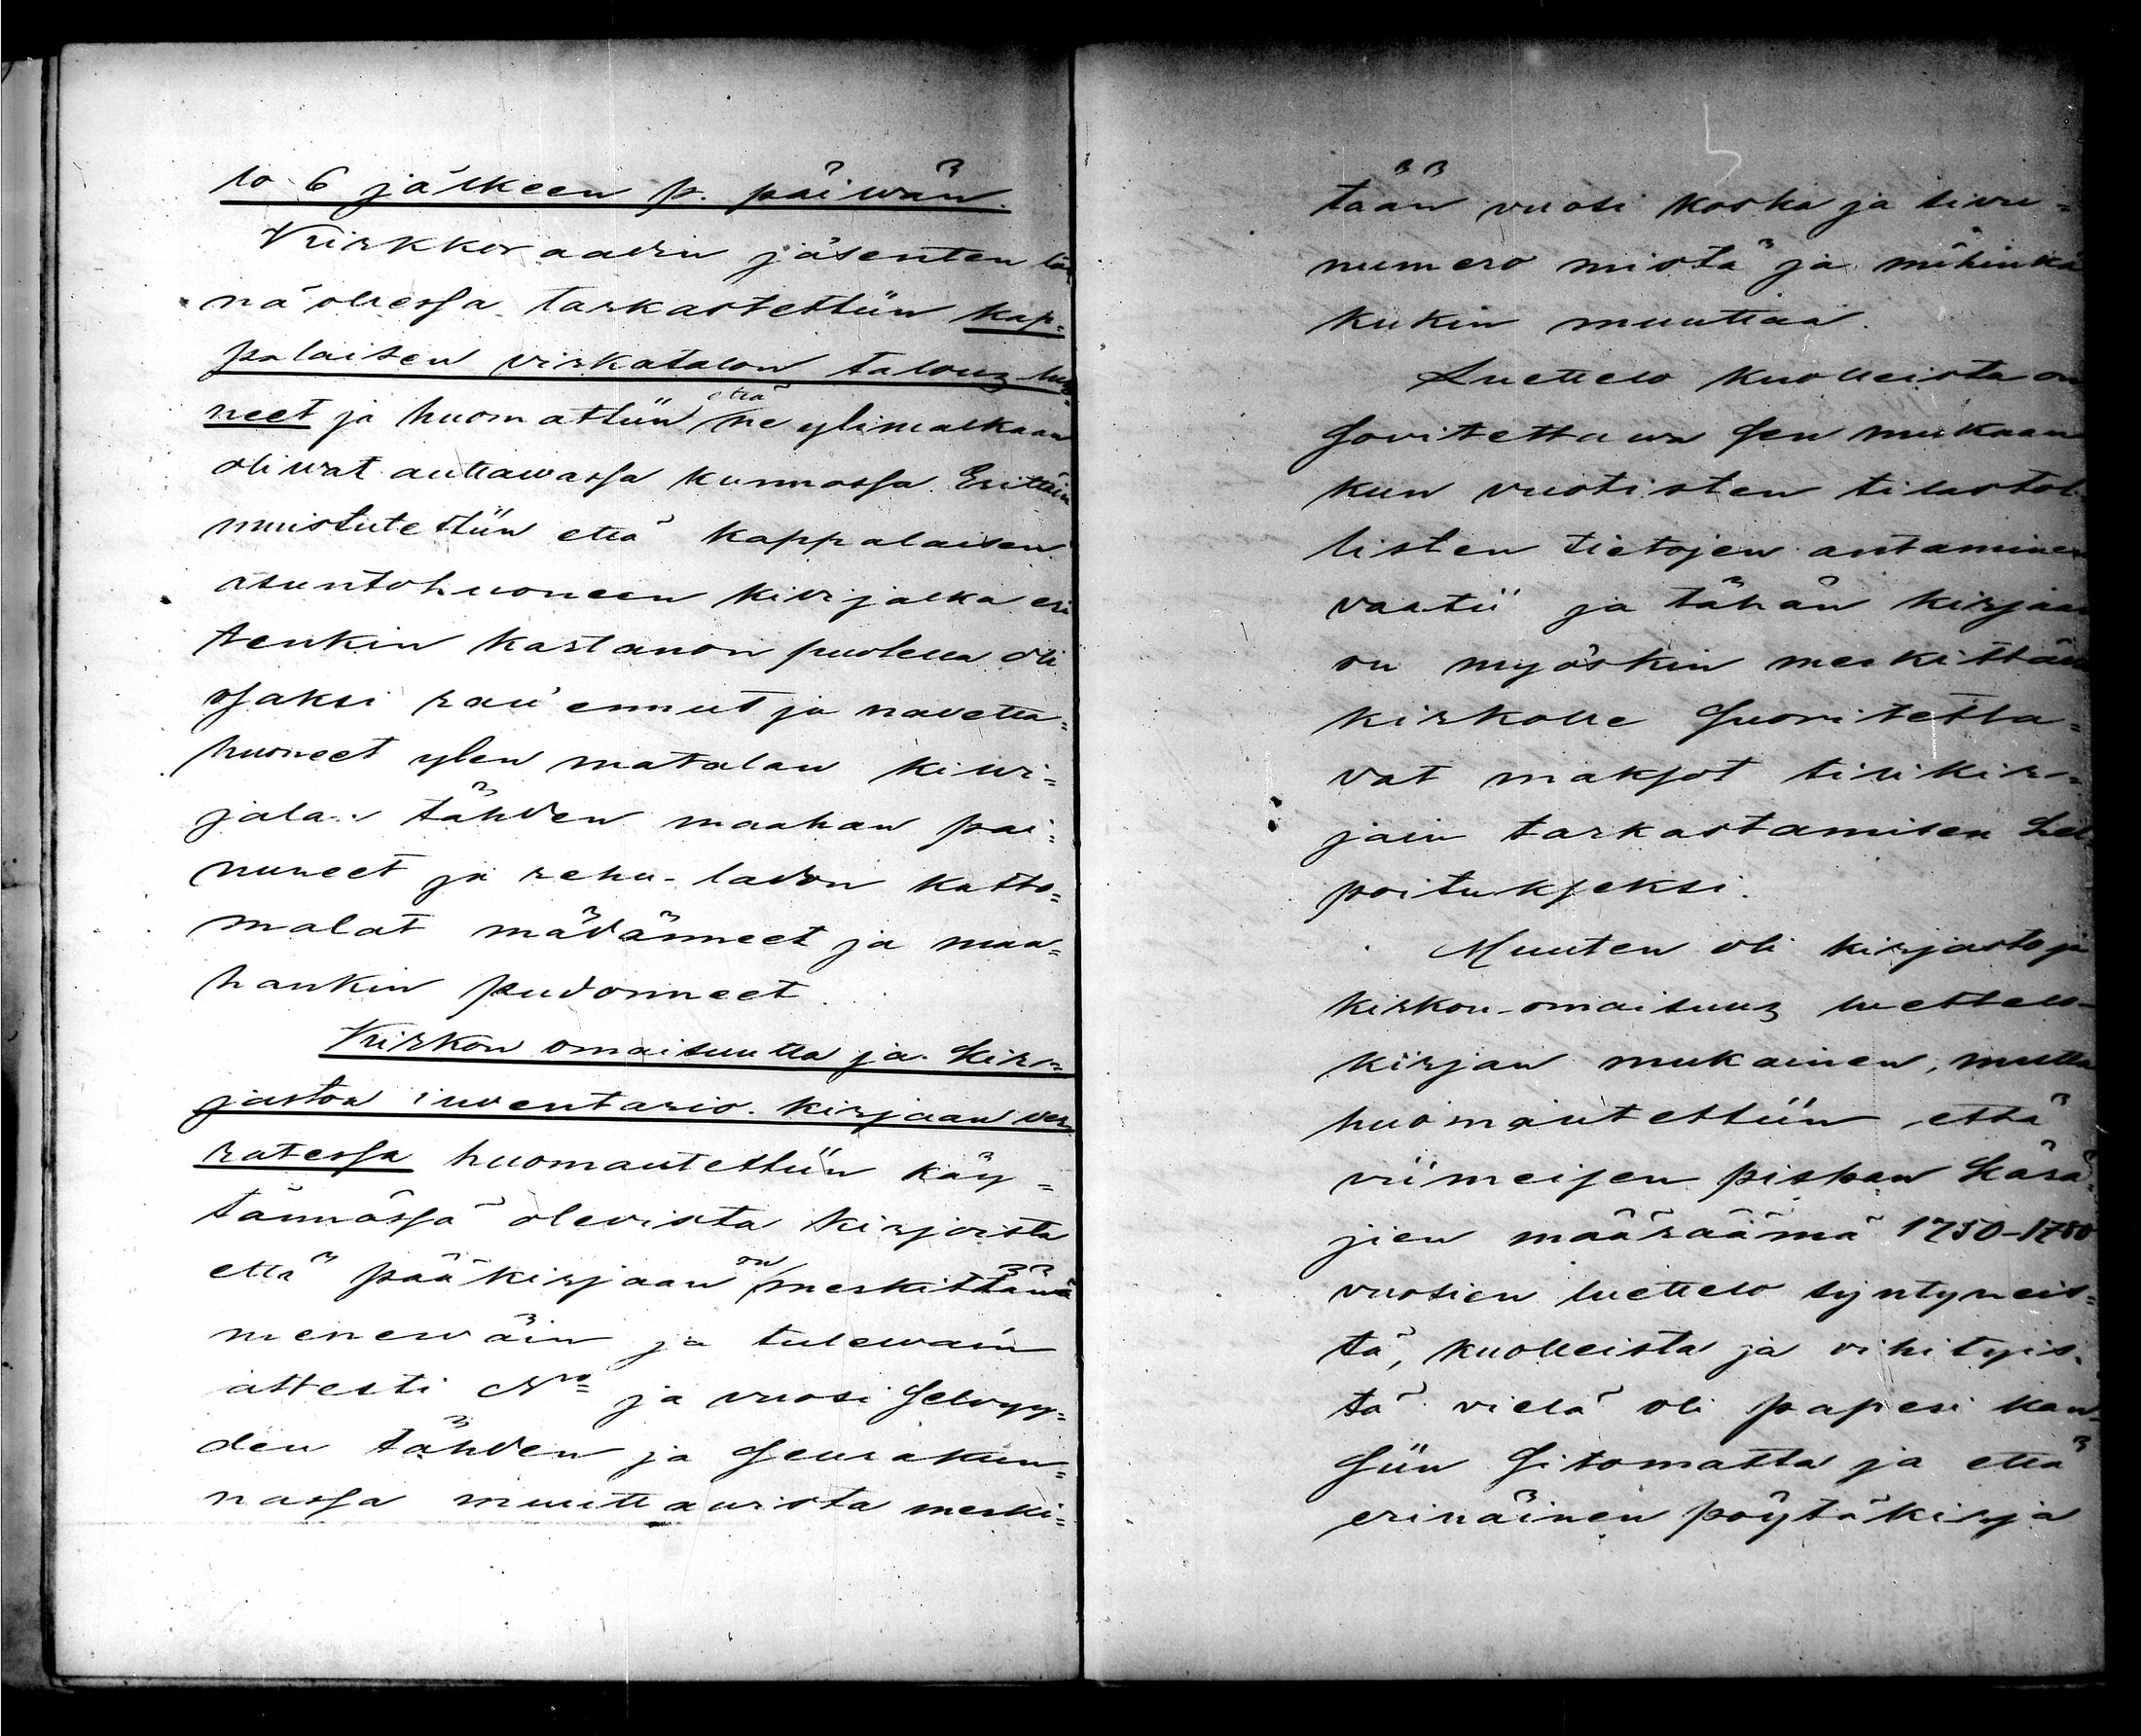 lo 6 jälkeen p. päiwän.
Kirkkoraadin jäsenten läs
nä ollessa tarkastettiin kap=
palaisen virkatalon talouz huo=
neet ja huomattiin että ne ylimalkaan
oliwat auttawassa kunnossa. Erittäin
muistutettiin että kappalaisen
asuntohuoneen kivijalka eri
tenkin kartanon puolella oli
osaksi rauennut ja navetta=
huoneet ylen matalan kiwi=
jalan tähden maahan pai=
nuneet ja rehu-ladon katto=
malat mädänneet ja maa=
hankin pudonneet.
Kirkon omaisuutta ja Kir=
jaston inventario-kirjaan ver
ratessa huomautettiin käy=
tännössä olevista kirjoista
että pääkirjaan on merkittävä
menewäin ja tulewain
attesti No ja vuosi selvyy=
den tähden ja seurakun=
nassa muuttavista merki=
tään vuosi koska ja sivu=
numero mistä ja mihinkä
kukin muuttaa.
Luettelo kuolleista on
sovitettawa sen mukaan
kun vuotisten tilastol=
listen tietojen antaminen
vaatii ja tähän kirjaan
on myöskin merkittävä
kirkolle suoritetta=
vat maksot tilikir=
jain tarkastamisen hel
poitukseksi.
Muuten oli kirjasto ja
kirkon-omaisuuz luettelo-
kirjan mukainen, mutta
huomautettiin että
viimeisen pispan Käsä=
jien määräämä 1750-1780
vuosien luettelo syntyneis=
tä, kuolleista ja vihityis=
tä vielä oli paperi kan=
siin sitomatta ja että
erinäinen pöytäkirja